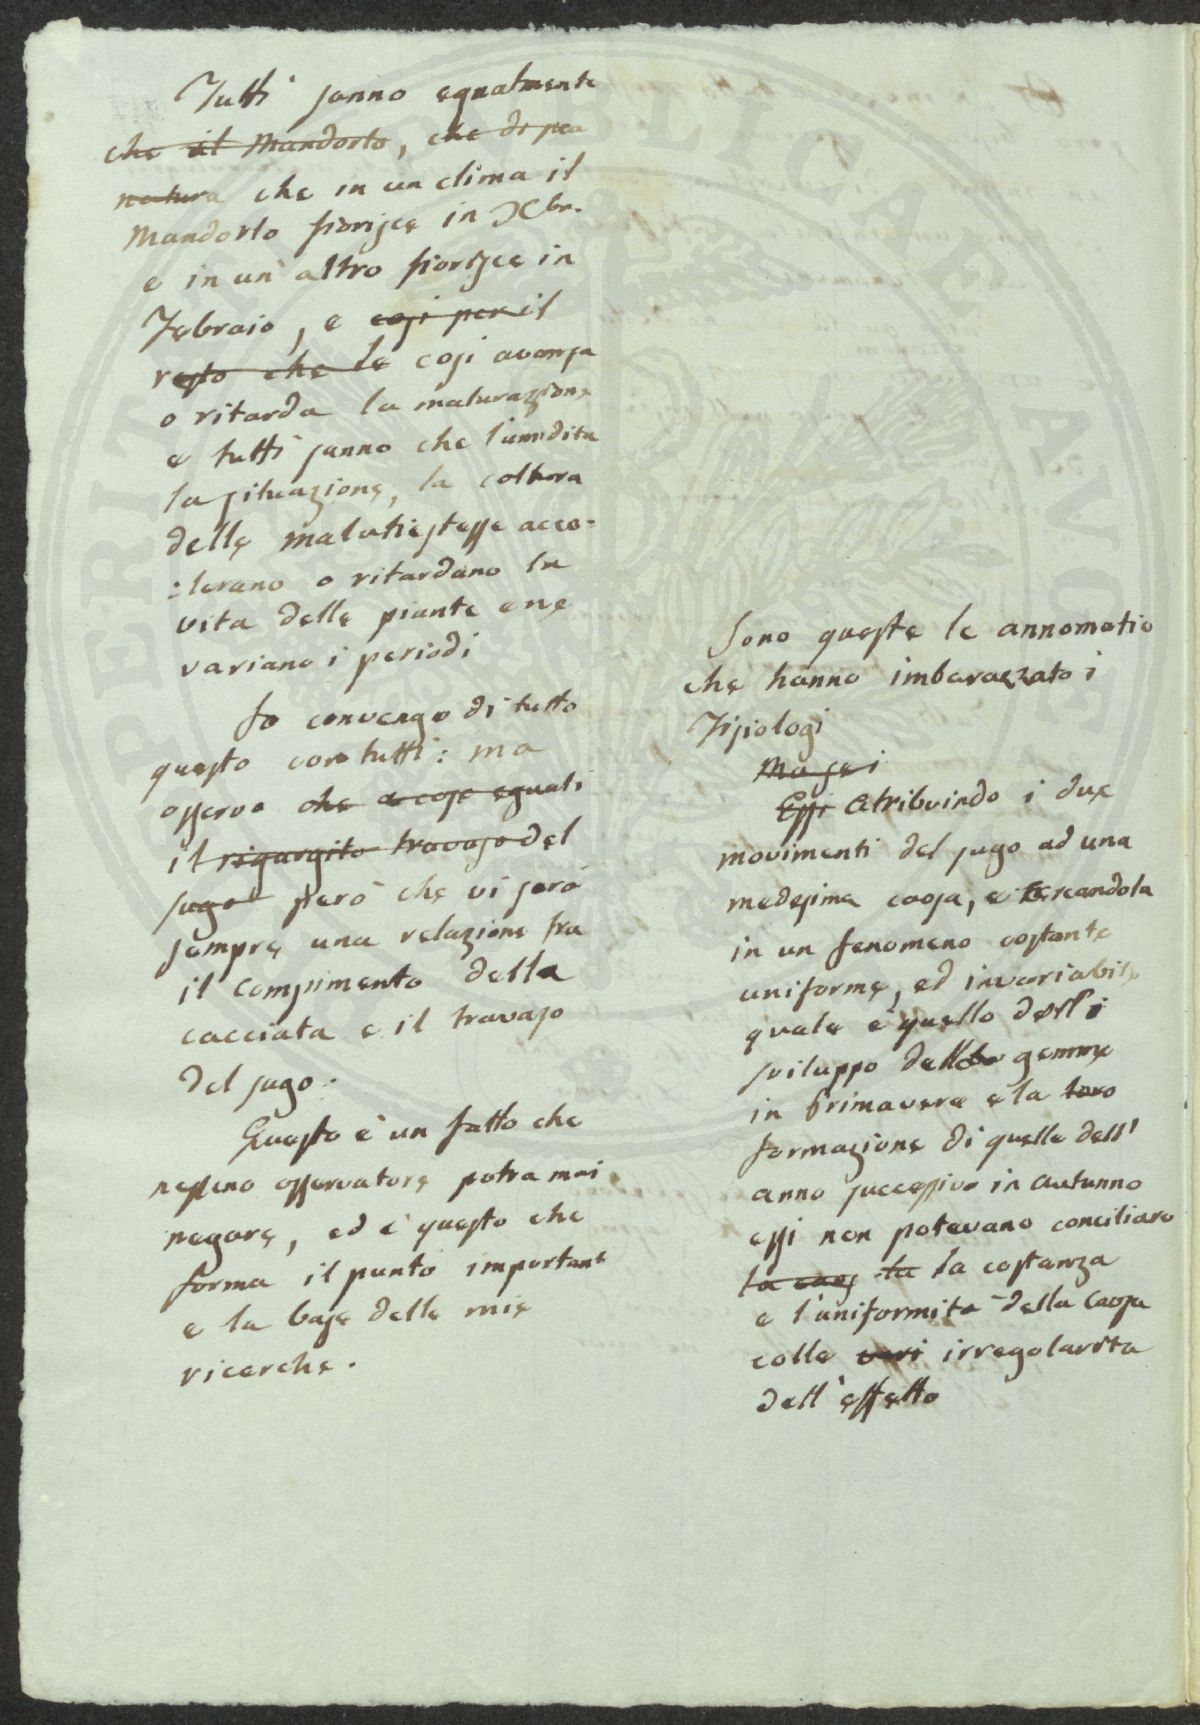 Tutti sanno egualmente
che il Mandorlo, che di pea
natura che in un clima il
Mandorlo fiorisce in Xbr.
e in un altro fiorisce in
Febraio, e cosi per il
resto che le cosi avanza
o ritarda la maturazione
e tutti sanno che l'umidita
la situazione, la coltura
delle malatie stesse acce=
:lerano o ritardano la
vita delle piante e ne
variano i periodi
Io convengo di tutto
questo con tutti: ma
osservo che a cose eguali
il rigurgito travaso del
sugo però che vi sarà
sempre una relazione tra
il compimento della
cacciata e il travaso
del sugo.
Questo è un fatto che
nessuno osservatore potra mai
negare, ed è questo che
forma il punto important
e la base delle mie
ricerche.
Sono queste le annomatie
che hanno imbarazzato i
Fisiologi
Ma se i
Essi Atribuindo i due
movimenti del sugo ad una
medesima caosa, e cercandola
in un fenomeno costante
uniforme, ed invariabile
quale è quello dello
sviluppo delle gemme
in Primavera e la loro
formazione di quelle dell'
anno successivo in Autunno
essi non potevano conciliare
la caos la la costanza
e l'uniformita della Caosa
colle vari irregolarita
dell'effetto